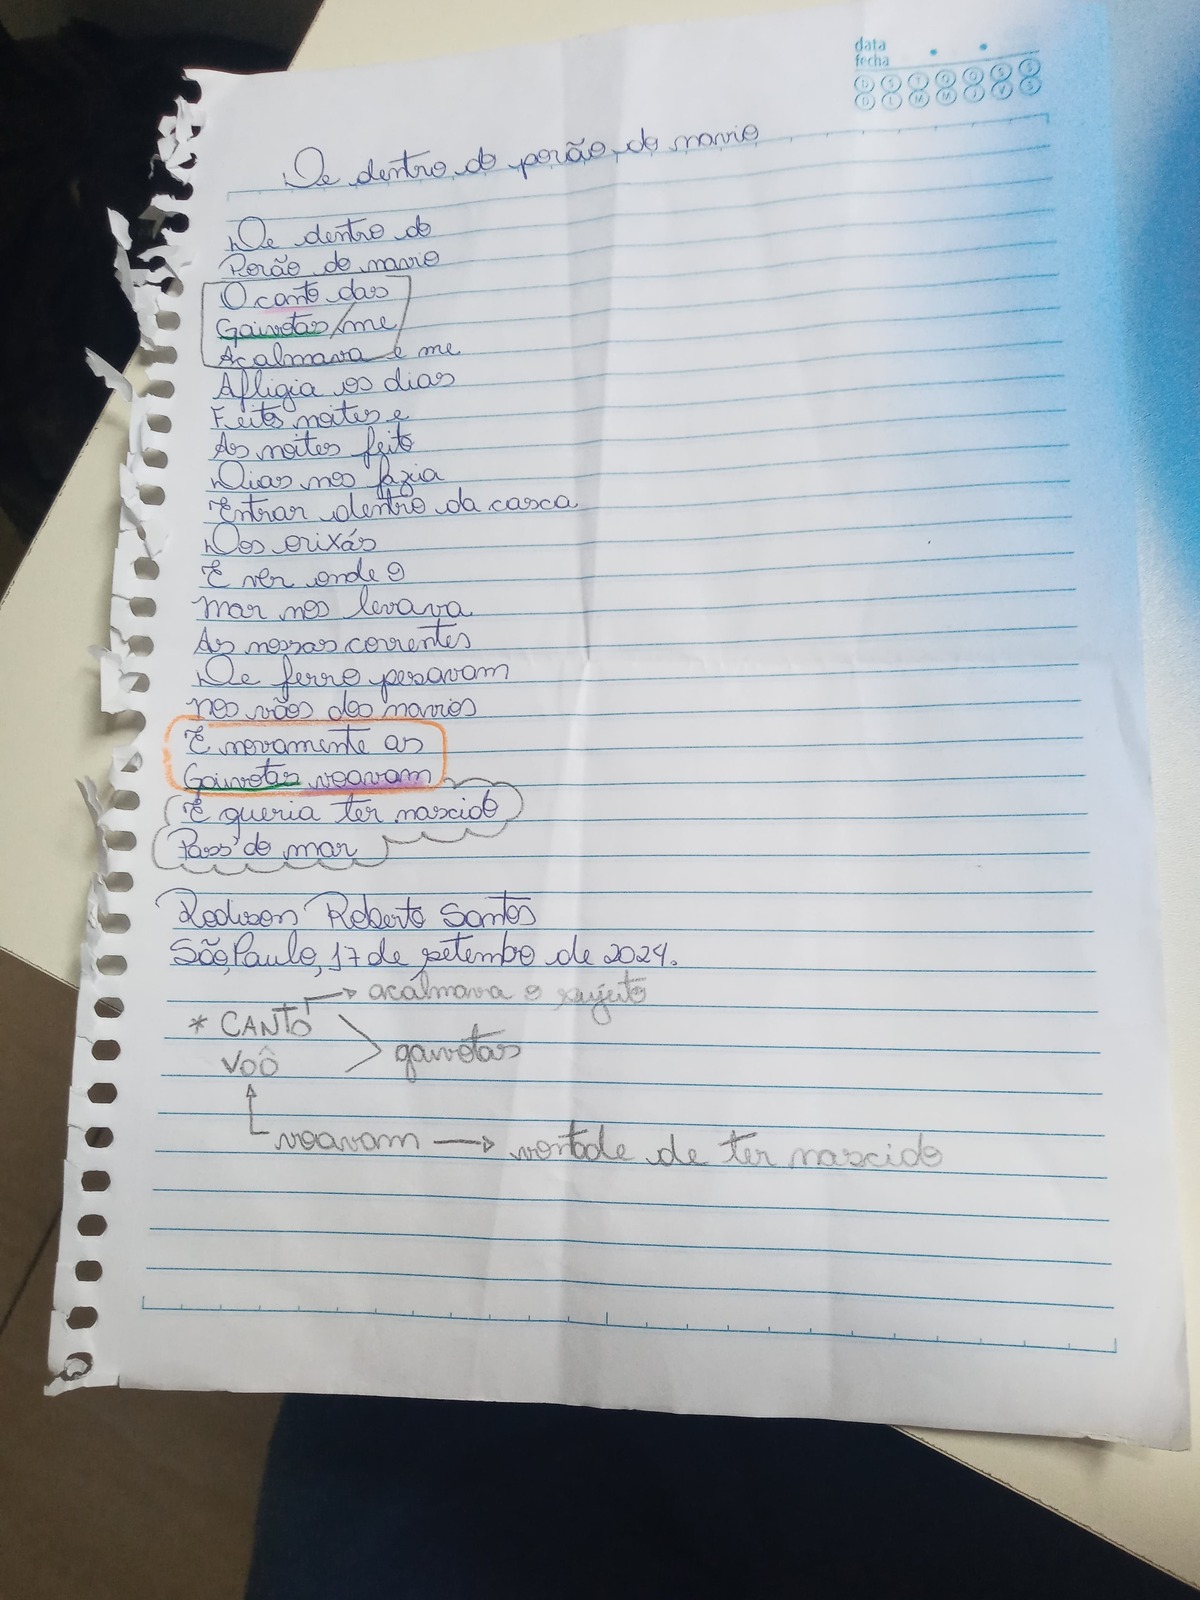 data
fecha
D S T Q Q S S
D L M M J V S
De dentro do porão do navio
De dentro do
Porão do navio
O canto das
Gaivotas/me
Acalmava e me
Afligia os dias
Feito noites e
As noites feito
Dias nos fazia
Entrar dentro da casca
Dos orixás
E ver onde o
Mar nos levava
As nossas correntes
De ferro pesavam
Nos vãos dos navios
E novamente as
Gaivotas voavam
E queria ter nascido
Pass' do mar
Roberto Santos
São Paulo, 17 de setembro de 2024.
→ acalmava o sujeito
* CANTO
gaivotas
VOÔ
voavam → vontade de ter nascido